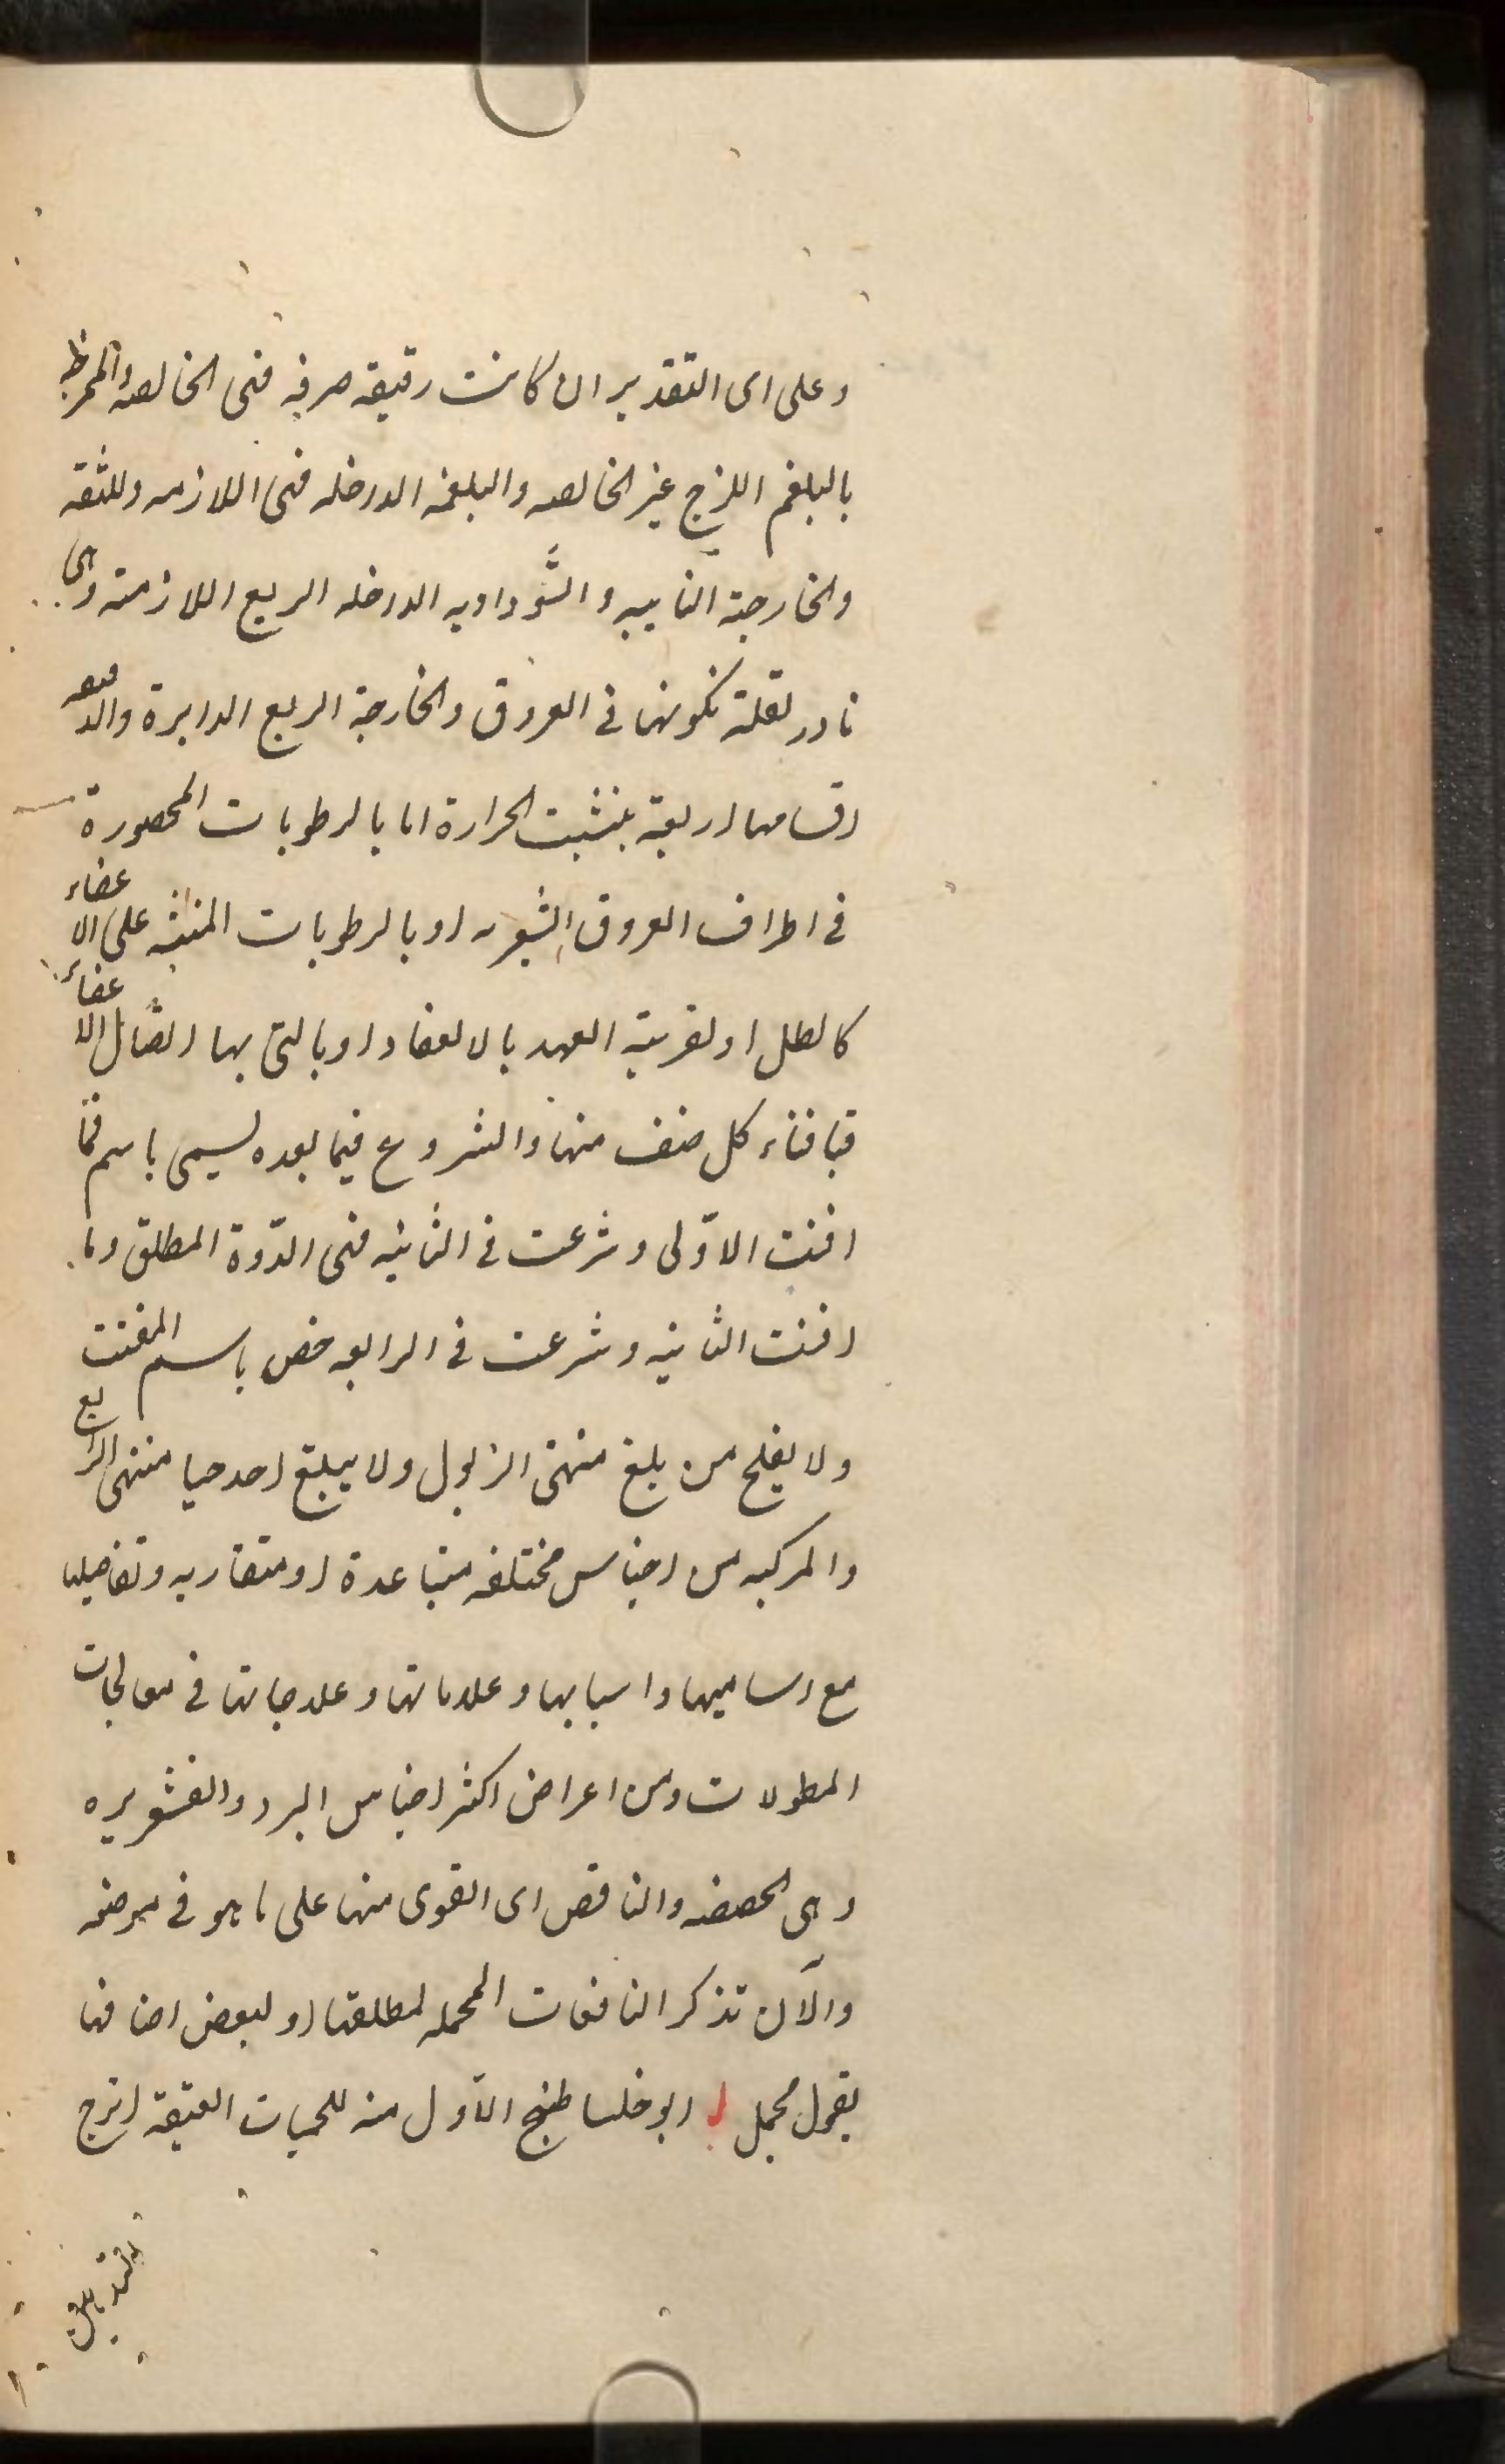 وعلى اى التقدير ان كانت رقيقة صرفه فهى الخالصه والمخلوط
بالبلغم اللزج غير الخالصه والبلغميه الداخله فهى اللازمه واللثقه
والخارجة النايبه والسّوداويه الداخله الربع اللازمته وهى
نادر لقلة تكونها فى العروق والخارجة الربع الدايرة والدقيه
اقسامها اربعة بتشبث الحرارة اما بالرطوبات المحصورة
فى اطراف العروق الشعريه او بالرطوبات المنبثه على الاعضاء
كالطل او لقريبة العهد بالانعقاد او بالتى بها اتصال الاعضاء
فبافناء كل صنف منها والشروع فيما بعده يسمى باسم فما
افنت الاوّلى وشرعت فى الثانيه فهى الدّوة المطلق وما
افنت الثانيه وشرعت فى الرابعه خص باسم المفتت
ولا يفلح من بلغ منتهى الذبول ولا يبلغ احد حيا منتهى الرابع
والمركبه من اجناس مختلفه متباعدة او متقاربه وتفاصيلها
مع اساميها واسبابها وعلاماتها وعلاجاتها فى معالجات
المطولات ومن اعراض اكثر اجناس البرد والقشعريره
وهى والنافض اى القوى منها على ما هو فى موضعه
والآن تذكر النافعات المجمله لمطلقها او لبعض اصنافها
بقول مجمل ابوخلسا طبخ الاوّل منه للحميات العتيقة اترج